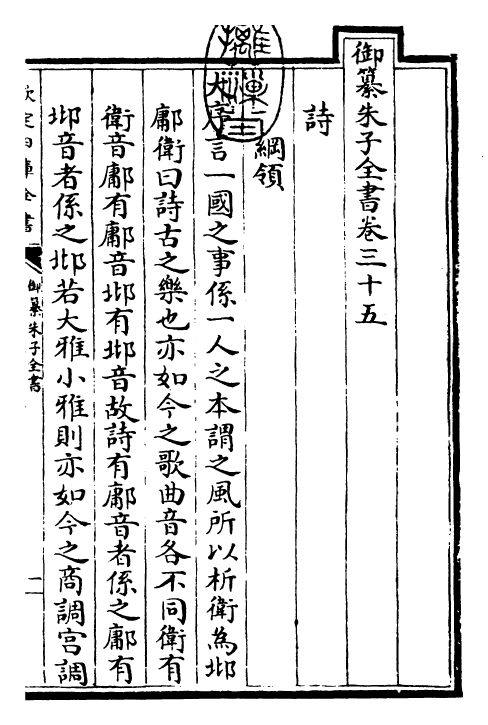 御纂朱子全書卷三十五
詩
綱領
大序言一國之事係一人之本謂之風所以析衛為邶
鄘衛曰詩古之樂也亦如今之歌曲音各不同衛有
衛音鄘有鄘音邶有邶音故詩有鄘音者係之鄘有
邶音者係之邶若大雅小雅則亦如今之商調宫調
欽定四庫全書
御纂朱子全書
一